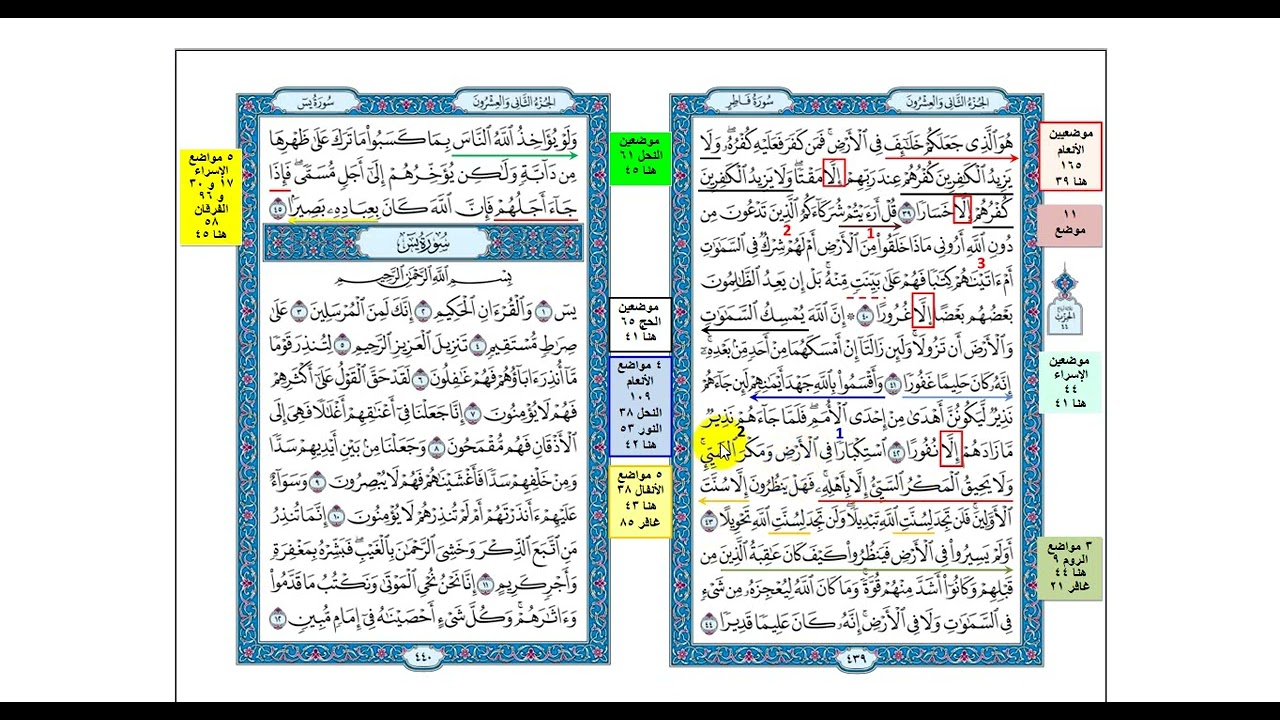 الجزء الثاني والعشرون
سورة فاطر
هُوَ ٱلَّذِي جَعَلَكُمۡ خَلَٰٓئِفَ فِي ٱلۡأَرۡضِۚ فَمَن كَفَرَ فَعَلَيۡهِ كُفۡرُهُۥۖ وَلَا
يَزِيدُ ٱلۡكَٰفِرِينَ كُفۡرُهُمۡ عِندَ رَبِّهِمۡ إِلَّا مَقۡتٗاۖ وَلَا يَزِيدُ ٱلۡكَٰفِرِينَ
كُفۡرُهُمۡ إِلَّا خَسَارٗا ٣٩ قُلۡ أَرَءَيۡتُمۡ شُرَكَآءَكُمُ ٱلَّذِينَ تَدۡعُونَ مِن
2 1
دُونِ ٱللَّهِ أَرُونِي مَاذَا خَلَقُواْ مِنَ ٱلۡأَرۡضِ أَمۡ لَهُمۡ شِرۡكٞ فِي ٱلسَّمَٰوَٰتِ
3
أَمۡ ءَاتَيۡنَٰهُمۡ كِتَٰبٗا فَهُمۡ عَلَىٰ بَيِّنَتٖ مِّنۡهُۚ بَلۡ إِن يَعِدُ ٱلظَّٰلِمُونَ
بَعۡضُهُم بَعۡضًا إِلَّا غُرُورًا ٤٠ ۞ إِنَّ ٱللَّهَ يُمۡسِكُ ٱلسَّمَٰوَٰتِ
وَٱلۡأَرۡضَ أَن تَزُولَاۚ وَلَئِن زَالَتَآ إِنۡ أَمۡسَكَهُمَا مِنۡ أَحَدٖ مِّنۢ بَعۡدِهِۦٓۚ
إِنَّهُۥ كَانَ حَلِيمًا غَفُورٗا ٤١ وَأَقۡسَمُواْ بِٱللَّهِ جَهۡدَ أَيۡمَٰنِهِمۡ لَئِن جَآءَهُمۡ
نَذِيرٞ لَّيَكُونُنَّ أَهۡدَىٰ مِنۡ إِحۡدَى ٱلۡأُمَمِۖ فَلَمَّا جَآءَهُمۡ نَذِيرٞ
1 2
مَّا زَادَهُمۡ إِلَّا نُفُورًا ٤٢ ٱسۡتِكۡبَارٗا فِي ٱلۡأَرۡضِ وَمَكۡرَ ٱلسَّيِّيِٕۚ
وَلَا يَحِيقُ ٱلۡمَكۡرُ ٱلسَّيِّئُ إِلَّا بِأَهۡلِهِۦۚ فَهَلۡ يَنظُرُونَ إِلَّا سُنَّتَ
ٱلۡأَوَّلِينَۚ فَلَن تَجِدَ لِسُنَّتِ ٱللَّهِ تَبۡدِيلٗاۖ وَلَن تَجِدَ لِسُنَّتِ ٱللَّهِ تَحۡوِيلًا ٤٣
أَوَلَمۡ يَسِيرُواْ فِي ٱلۡأَرۡضِ فَيَنظُرُواْ كَيۡفَ كَانَ عَٰقِبَةُ ٱلَّذِينَ مِن
قَبۡلِهِمۡ وَكَانُوٓاْ أَشَدَّ مِنۡهُمۡ قُوَّةٗۚ وَمَا كَانَ ٱللَّهُ لِيُعۡجِزَهُۥ مِن شَيۡءٖ
فِي ٱلسَّمَٰوَٰتِ وَلَا فِي ٱلۡأَرۡضِۚ إِنَّهُۥ كَانَ عَلِيمٗا قَدِيرٗا ٤٤
٤٣٩
موضعيين
الأنعام
١٦٥
هنا ٣٩
١١
موضع
الحزب
٤٤
موضعين
الإسراء
٤٤
هنا ٤١
٣ مواضع
الروم ٩
هنا ٤٤
غافر ٢١
موضعين
النحل ٦١
هنا ٤٥
موضعين
الحج ٦٥
هنا ٤١
٤ مواضع
الأنعام
١٠٩
النحل ٣٨
النور ٥٣
هنا ٤٢
٥ مواضع
الأنفال ٣٨
هنا ٤٣
غافر ٨٥
الجزء الثاني والعشرون
سورة يس
وَلَوۡ يُؤَاخِذُ ٱللَّهُ ٱلنَّاسَ بِمَا كَسَبُواْ مَا تَرَكَ عَلَىٰ ظَهۡرِهَا
مِن دَآبَّةٖ وَلَٰكِن يُؤَخِّرُهُمۡ إِلَىٰٓ أَجَلٖ مُّسَمّٗىۖ فَإِذَا
جَآءَ أَجَلُهُمۡ فَإِنَّ ٱللَّهَ كَانَ بِعِبَادِهِۦ بَصِيرَۢا ٤٥
سورة يس
بِسۡمِ ٱللَّهِ ٱلرَّحۡمَٰنِ ٱلرَّحِيمِ
يسٓ ١ وَٱلۡقُرۡءَانِ ٱلۡحَكِيمِ ٢ إِنَّكَ لَمِنَ ٱلۡمُرۡسَلِينَ ٣ عَلَىٰ
صِرَٰطٖ مُّسۡتَقِيمٖ ٤ تَنزِيلَ ٱلۡعَزِيزِ ٱلرَّحِيمِ ٥ لِتُنذِرَ قَوۡمٗا
مَّآ أُنذِرَ ءَابَآؤُهُمۡ فَهُمۡ غَٰفِلُونَ ٦ لَقَدۡ حَقَّ ٱلۡقَوۡلُ عَلَىٰٓ أَكۡثَرِهِمۡ
فَهُمۡ لَا يُؤۡمِنُونَ ٧ إِنَّا جَعَلۡنَا فِيٓ أَعۡنَٰقِهِمۡ أَغۡلَٰلٗا فَهِيَ إِلَى
ٱلۡأَذۡقَانِ فَهُم مُّقۡمَحُونَ ٨ وَجَعَلۡنَا مِنۢ بَيۡنِ أَيۡدِيهِمۡ سَدّٗا
وَمِنۡ خَلۡفِهِمۡ سَدّٗا فَأَغۡشَيۡنَٰهُمۡ فَهُمۡ لَا يُبۡصِرُونَ ٩ وَسَوَآءٌ
عَلَيۡهِمۡ ءَأَنذَرۡتَهُمۡ أَمۡ لَمۡ تُنذِرۡهُمۡ لَا يُؤۡمِنُونَ ١٠ إِنَّمَا تُنذِرُ
مَنِ ٱتَّبَعَ ٱلذِّكۡرَ وَخَشِيَ ٱلرَّحۡمَٰنَ بِٱلۡغَيۡبِۖ فَبَشِّرۡهُ بِمَغۡفِرَةٖ
وَأَجۡرٖ كَرِيمٍ ١١ إِنَّا نَحۡنُ نُحۡيِ ٱلۡمَوۡتَىٰ وَنَكۡتُبُ مَا قَدَّمُواْ
وَءَاثَٰرَهُمۡۚ وَكُلَّ شَيۡءٍ أَحۡصَيۡنَٰهُ فِيٓ إِمَامٖ مُّبِينٖ ١٢
٤٤٠
٥ مواضع
الإسراء
١٧ و ٣٠
و ٩٦
الفرقان
٥٨
هنا ٤٥